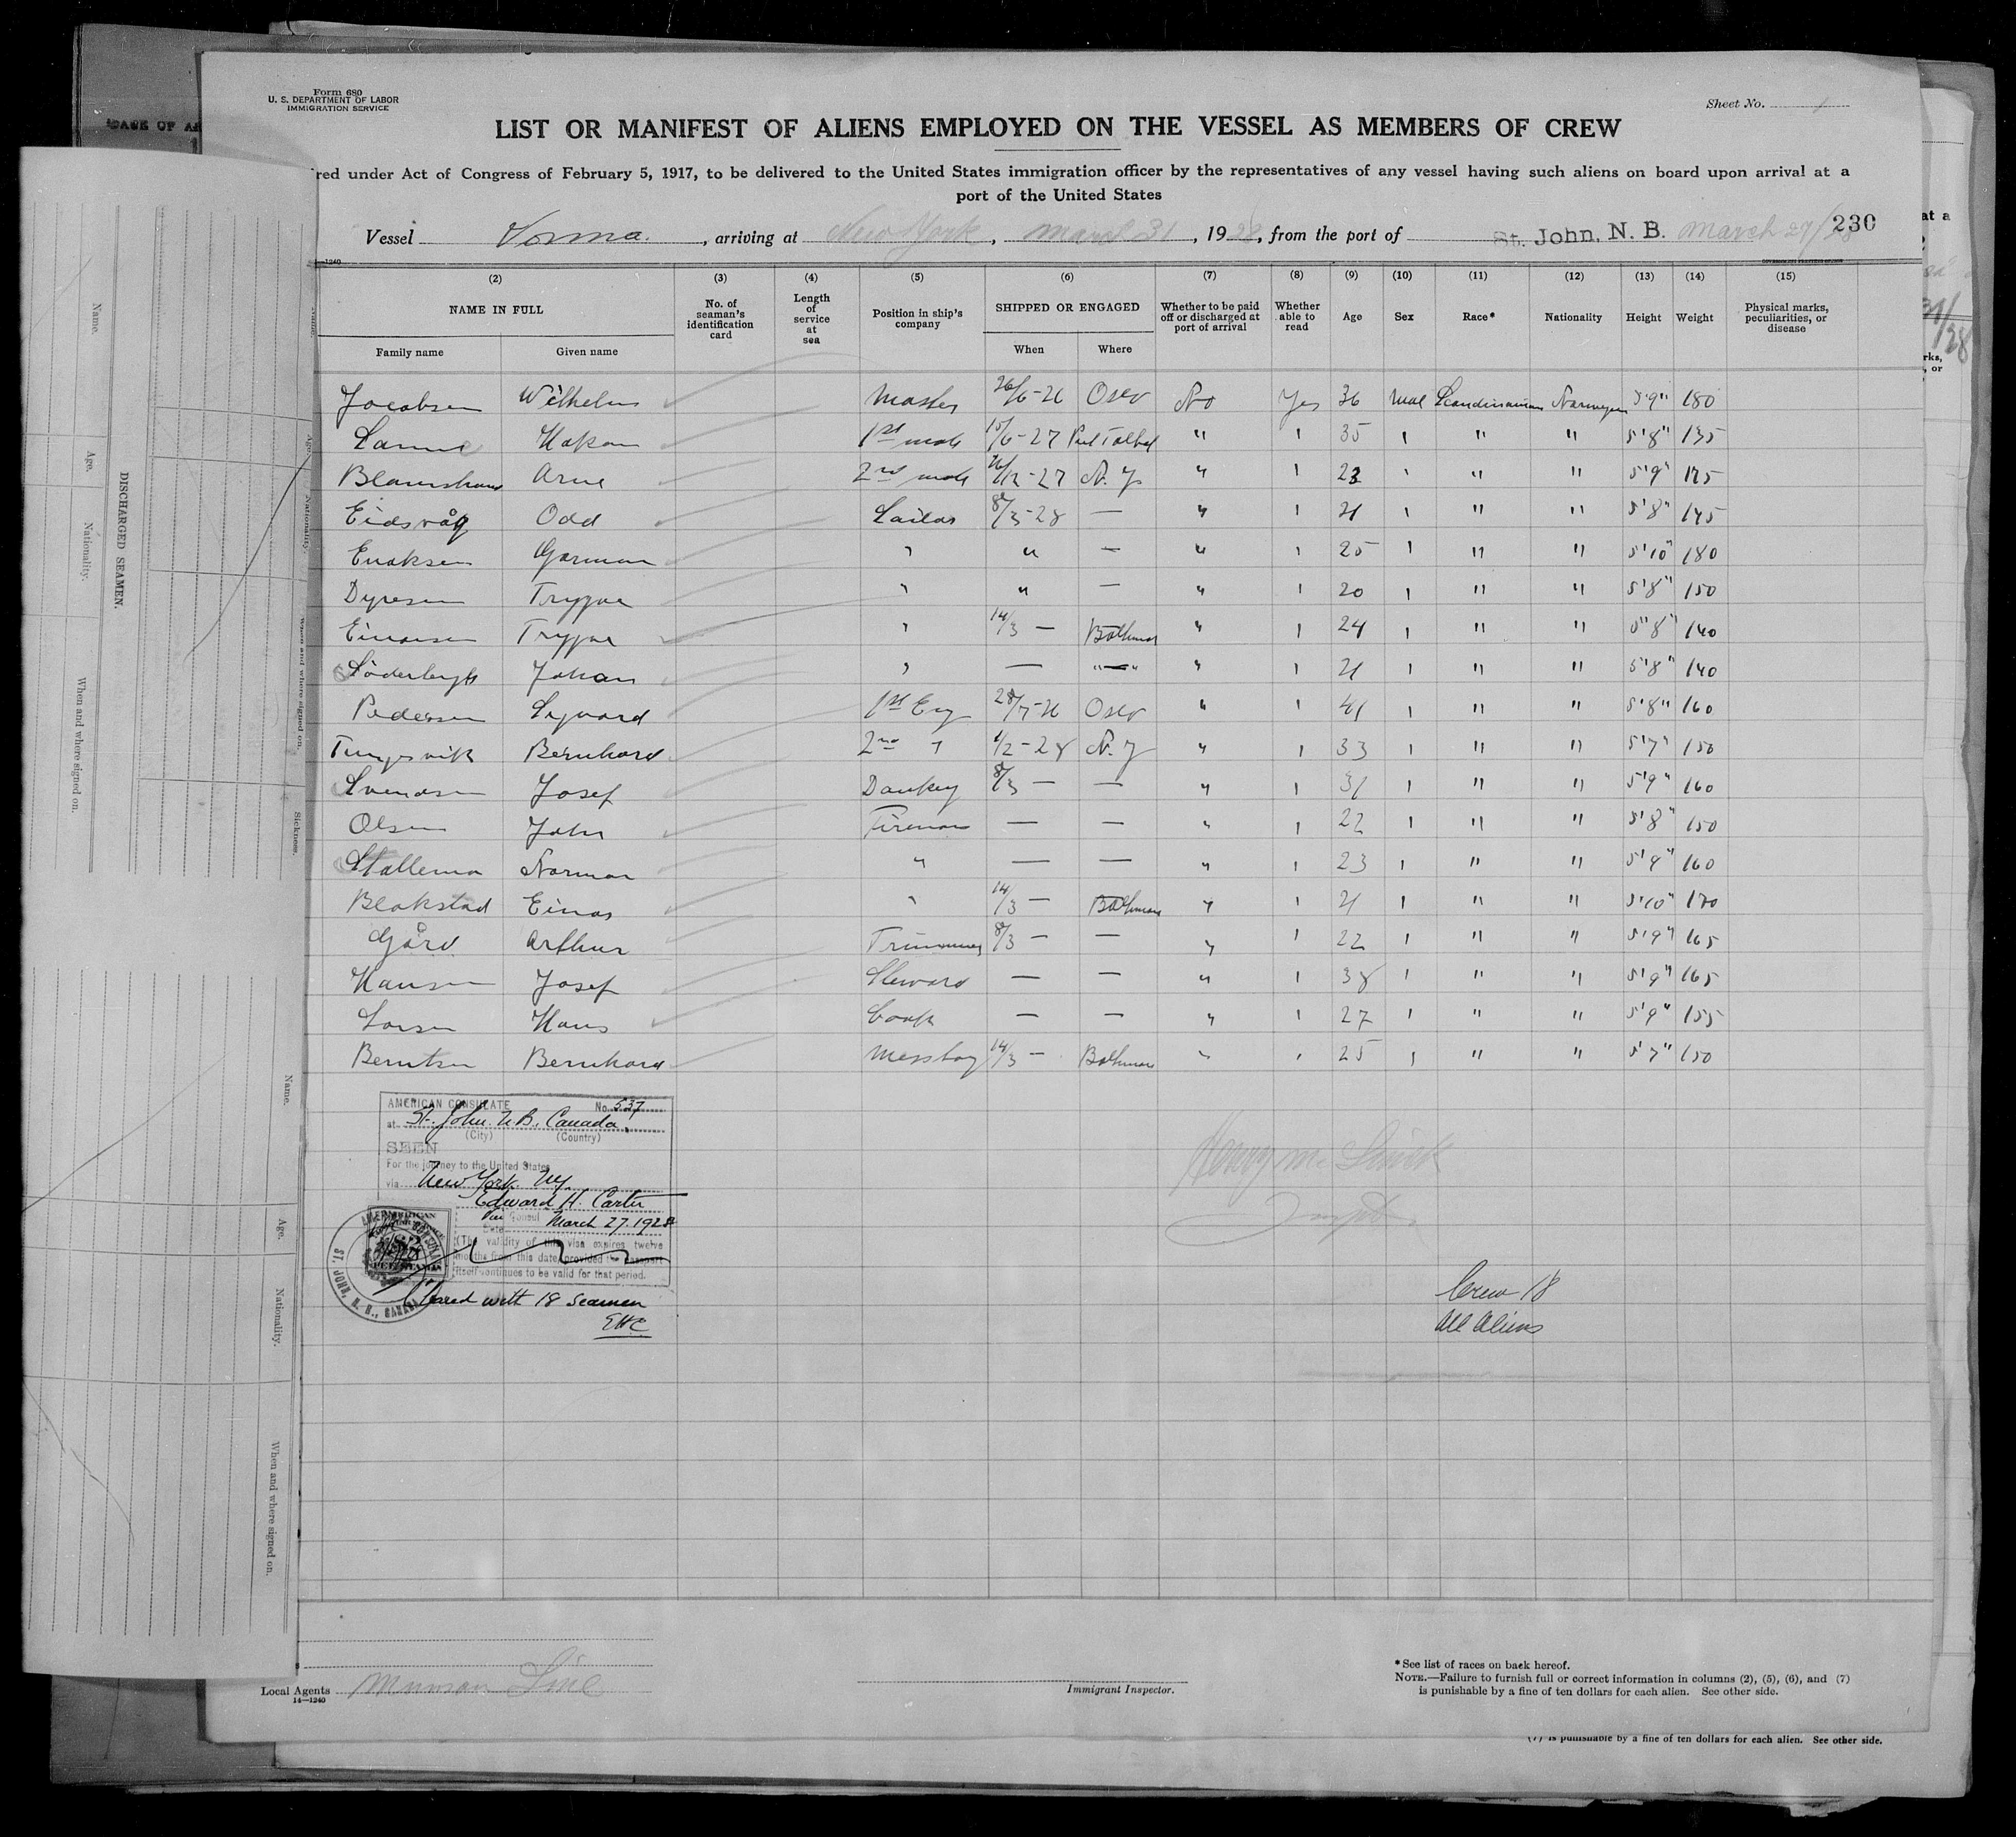 Form 680
U. S. DEPARTMENT OF LABOR
IMMIGRATION SERVICE
Sheet No. 1
LIST OR MANIFEST OF ALIENS EMPLOYED ON THE VESSEL AS MEMBERS OF CREW
red under Act of Congress of February 5, 1917, to be delivered to the United States immigration officer by the representatives of any vessel having such aliens on board upon arrival at a
port of the United States
230
Vessel Norma. , arriving at New York , March 31 , 1928, from the port of St. John, N. B. March 27/28
(2) (3) (4) (5) (6) (7) (8) (9) (10) (11) (12) (13) (14) (15)
NAME IN FULL No. of seaman's identification card Length of service at sea Position in ship's company SHIPPED OR ENGAGED Whether to be paid off or discharged at port of arrival Whether able to read Age Sex Race* Nationality Height Weight Physical marks, peculiarities, or disease
Family name Given name When Where
Jacobsen Wilhelm Master 26/6-26 Oslo No Yes 36 Male Scandinavian Norwegian 5'9" 180
Hakon 1st mate 15/6-27 Port Talbot " " 35 " " " 5'8" 135
Arne 2nd mate /12-27 N. Y " " 23 " " " 5'9" 175
Eidsvåg Odd Sailor 8/3-28 — " " 21 " " " 5'8" 145
Gorman " " — " " 25 " " " 5'10" 180
Dyresen Trygve " " — " " 20 " " " 5'8" 150
Einarsen Trygve " 14/3 — Baltimore " " 24 " " " 5"8" 140
Söderbergh Johan " — "—" " " 21 " " " 5'8" 140
Pedersen Sigvard 1st Eng 28/7-26 Oslo " " 41 " " " 5'8" 160
Tungesvik Bernhard 2nd " /2-28 N. Y " " 33 " " " 5'7" 150
Svendsen Josef Donkey 8/3 — — " " 31 " " " 5'9" 160
Olsen John Fireman — — " " 22 " " " 5'8" 150
Norman " — — " " 23 " " " 5'9" 160
Blakstad Einar " 14/3 — Baltimore " " 21 " " " 5'10" 170
Gård Arthur Trimmer 8/3 — — " " 22 " " " 5'9" 165
Hansen Josef Steward — — " " 38 " " " 5'9" 165
Larsen Hans Cook — — " " 27 " " " 5'9" 155
Berntsen Bernhard Messboy 14/3 — Baltimore " " 25 " " " 5'7" 150
AMERICAN CONSULATE No. 537
at St. John. N.B., Canada.
(City) (Country)
SEEN
For the journey to the United States
via New York. N.Y.
Edward H. Carter
Vice Consul
Date March 27. 1928
(The validity of this visa expires twelve
months from this date provided the passport
itself continues to be valid for that period.
ST. JOHN, N. B., CANADA
Cleared with 18 seamen
EHC
Crew 18
All Aliens
Local Agents Munson Line
14—1240
Immigrant Inspector.
*See list of races on back hereof.
NOTE.—Failure to furnish full or correct information in columns (2), (5), (6), and (7)
is punishable by a fine of ten dollars for each alien. See other side.
(7) is punishable by a fine of ten dollars for each alien. See other side.
DISCHARGED SEAMEN.
Name.
Age.
Nationality.
When and where signed on.
Sickness.
Name.
Age.
Nationality.
When and where signed on.